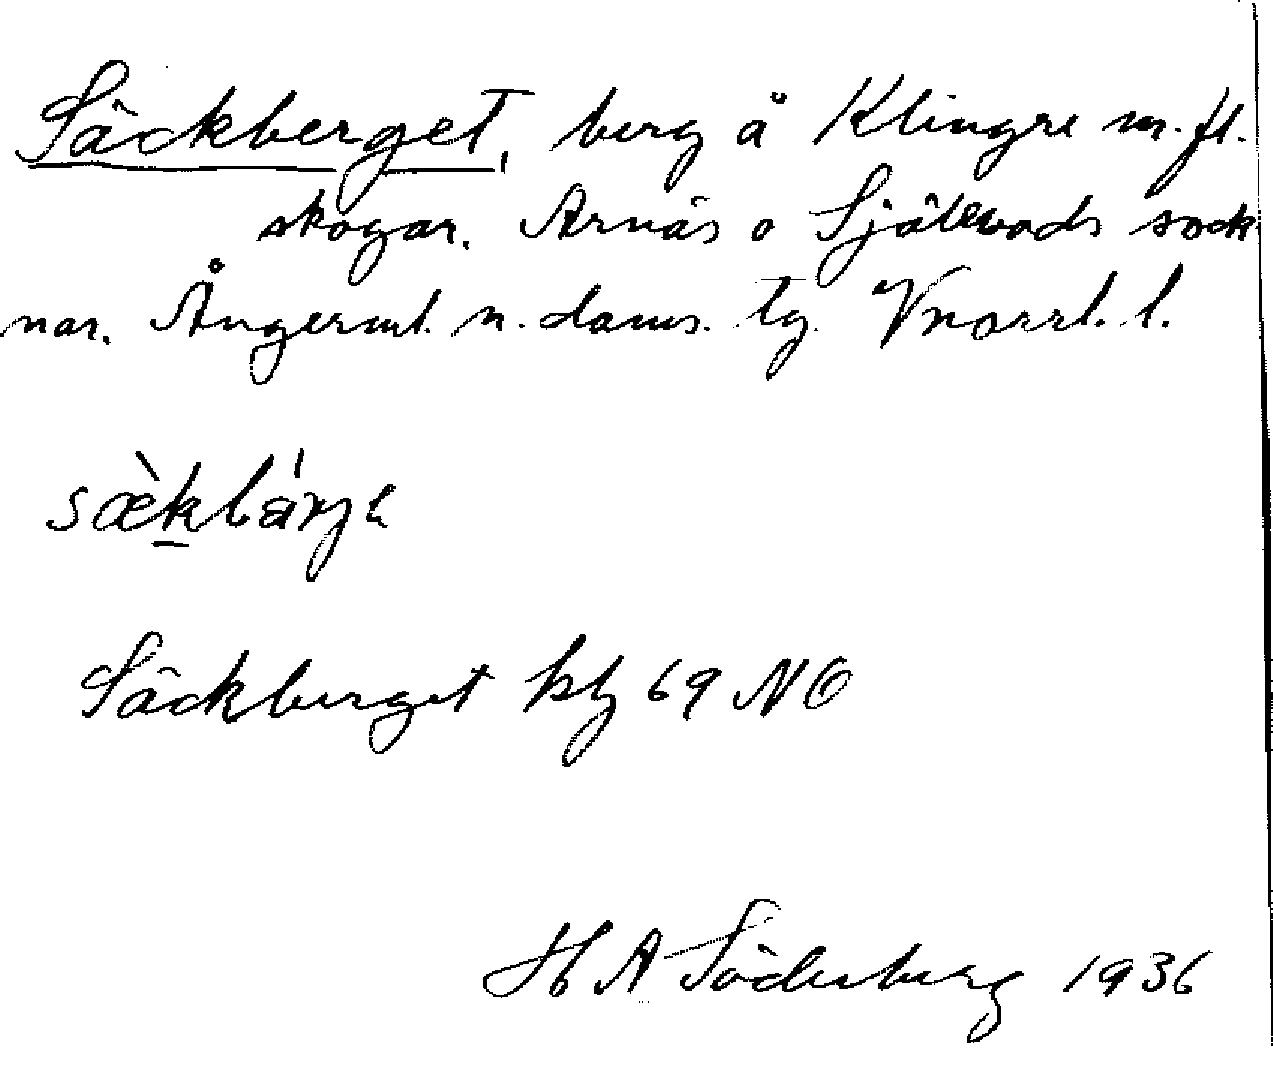 Säckberget, berg å Klingre m. fl.
skogar. Arnäs o Själevads sock
nar. Ångerml. n. doms. tg. Vnorrl. l.
sæ̀kbárjɩ
Säckberget kbl 69 NO
H A Söderberg 1936